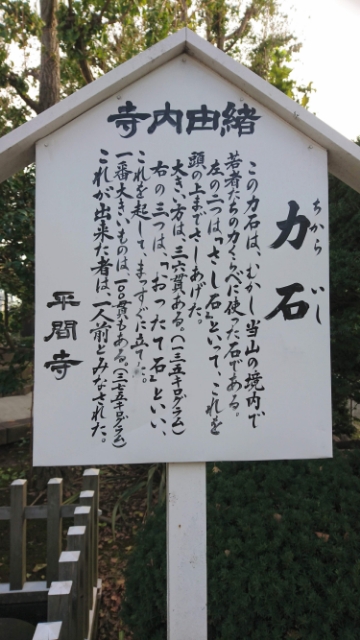 寺内由緒
力石
ちから いし
この力石は、むかし当山の境内で
若者たちの力くらべに使った石である。
左の二つは「さし石」といって、これを
頭の上までさしあげた。
大きい方は、三六貫ある。(一三五キログラム)
右の三つは、「おったて石」といい、
これを起して、まっすぐに立てた。
一番大きいものは、一〇〇貫もある。(三七五キログラム)
これが出来た者は一人前とみなされた。
平間寺